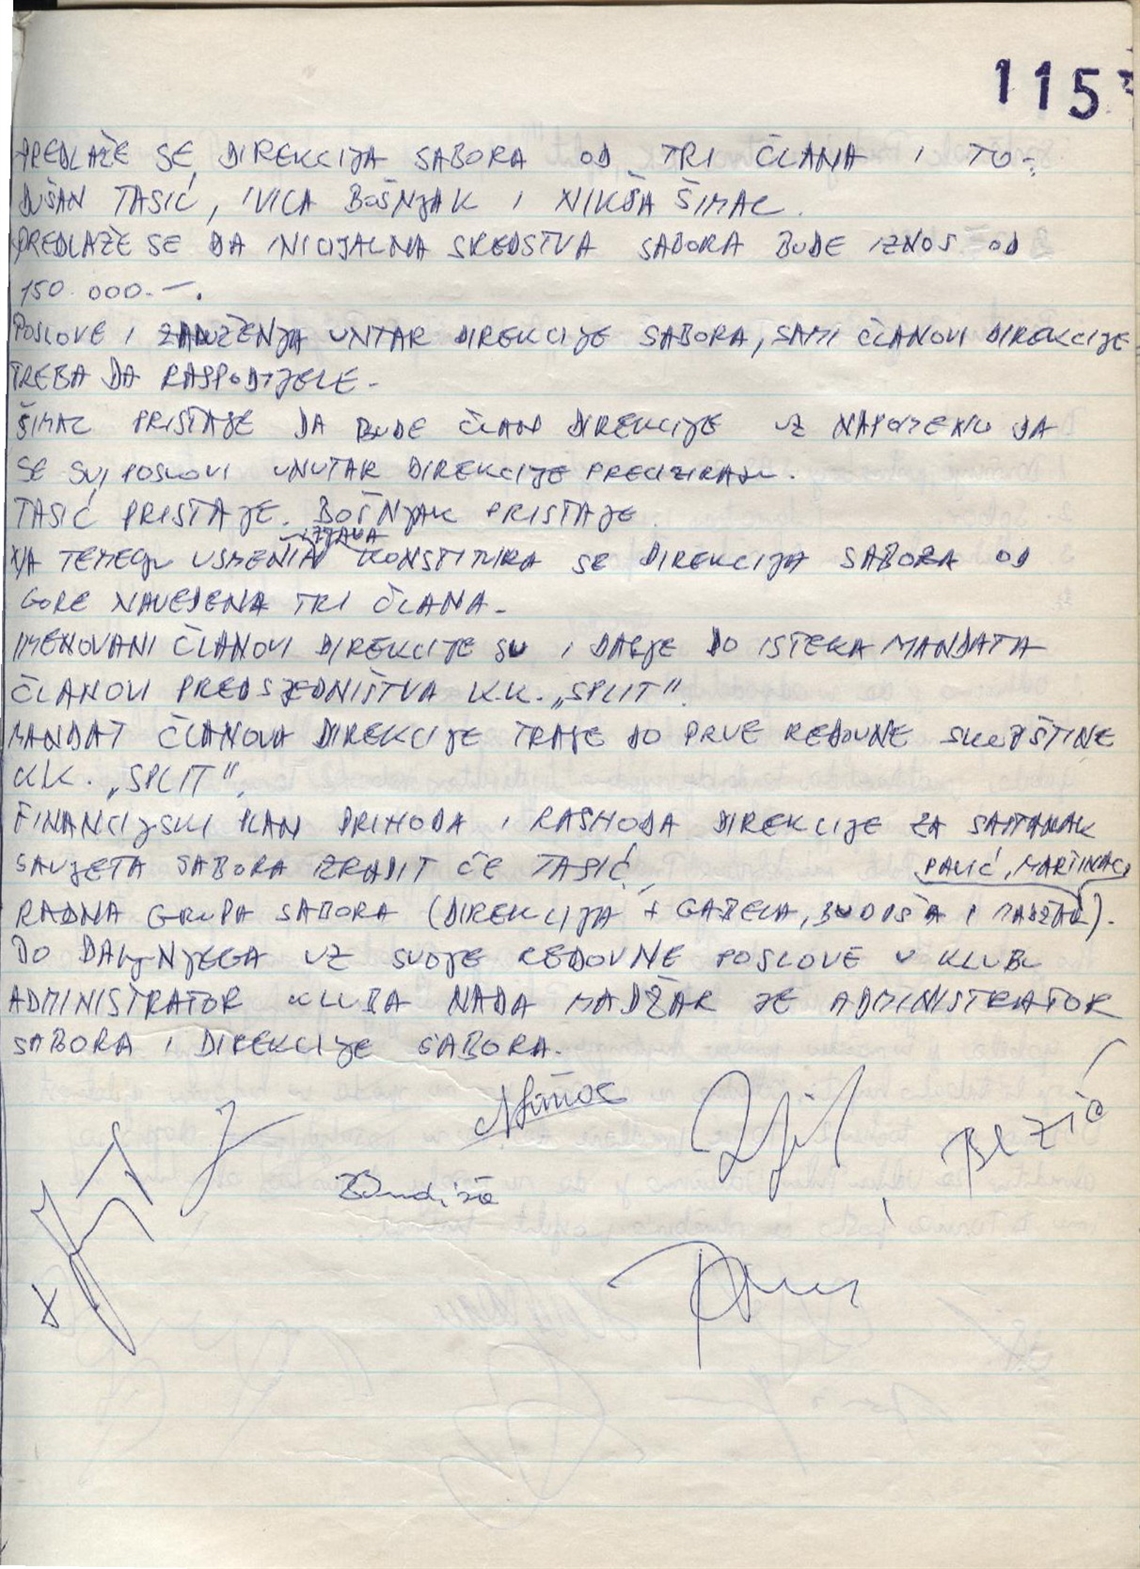 115
PREDLAŽE SE DIREKCIJA SABORA OD TRI ČLANA I TO:
DUŠAN TASIĆ, IVICA BOŠNJAK I NIKŠA ŠIMAC.
PREDLAŽE SE DA INICIJALNA SREDSTVA SABORA BUDE IZNOS OD
150.000.-.
POSLOVE I ZADUŽENJA UNTAR DIREKCIJE SABORA, SAMI ČLANOVI DIREKCIJE
TREBA DA RASPODIJELE.
ŠIMAC PRISTAJE DA BUDE ČLAN DIREKCIJE UZ NAPOMENU DA
SE SVI POSLOVI UNUTAR DIREKCIJE PRECIZIRAJU.
TASIĆ PRISTAJE. BOŠNJAK PRISTAJE.
IZJAVA
NA TEMELJU USMENIH KONSTITUIRA SE DIREKCIJA SABORA OD
GORE NAVEDENA TRI ČLANA.
IMENOVANI ČLANOVI DIREKCIJE SU I DALJE DO ISTEKA MANDATA
ČLANOVI PREDSJEDNIŠTVA K.K. „SPLIT".
MANDAT ČLANOVA DIREKCIJE TRAJE DO PRVE REDOVNE SKUPŠTINE
KK. „SPLIT".
FINANCIJSKI PLAN PRIHODA I RASHODA DIREKCIJE ZA SASTANAK
SAVJETA SABORA IZRADIT ĆE TASIĆ.
PAVIĆ, MARTINAC,
RADNA GRUPA SABORA (DIREKCIJA + GABELA, BUDIŠA I MADŽAR).
DO DALJNJEGA UZ SVOJE REDOVNE POSLOVE U KLUBU
ADMINISTRATOR KLUBA NADA MADŽAR JE ADMINISTRATOR
SABORA I DIREKCIJE SABORA.
NŠimac
Bezić